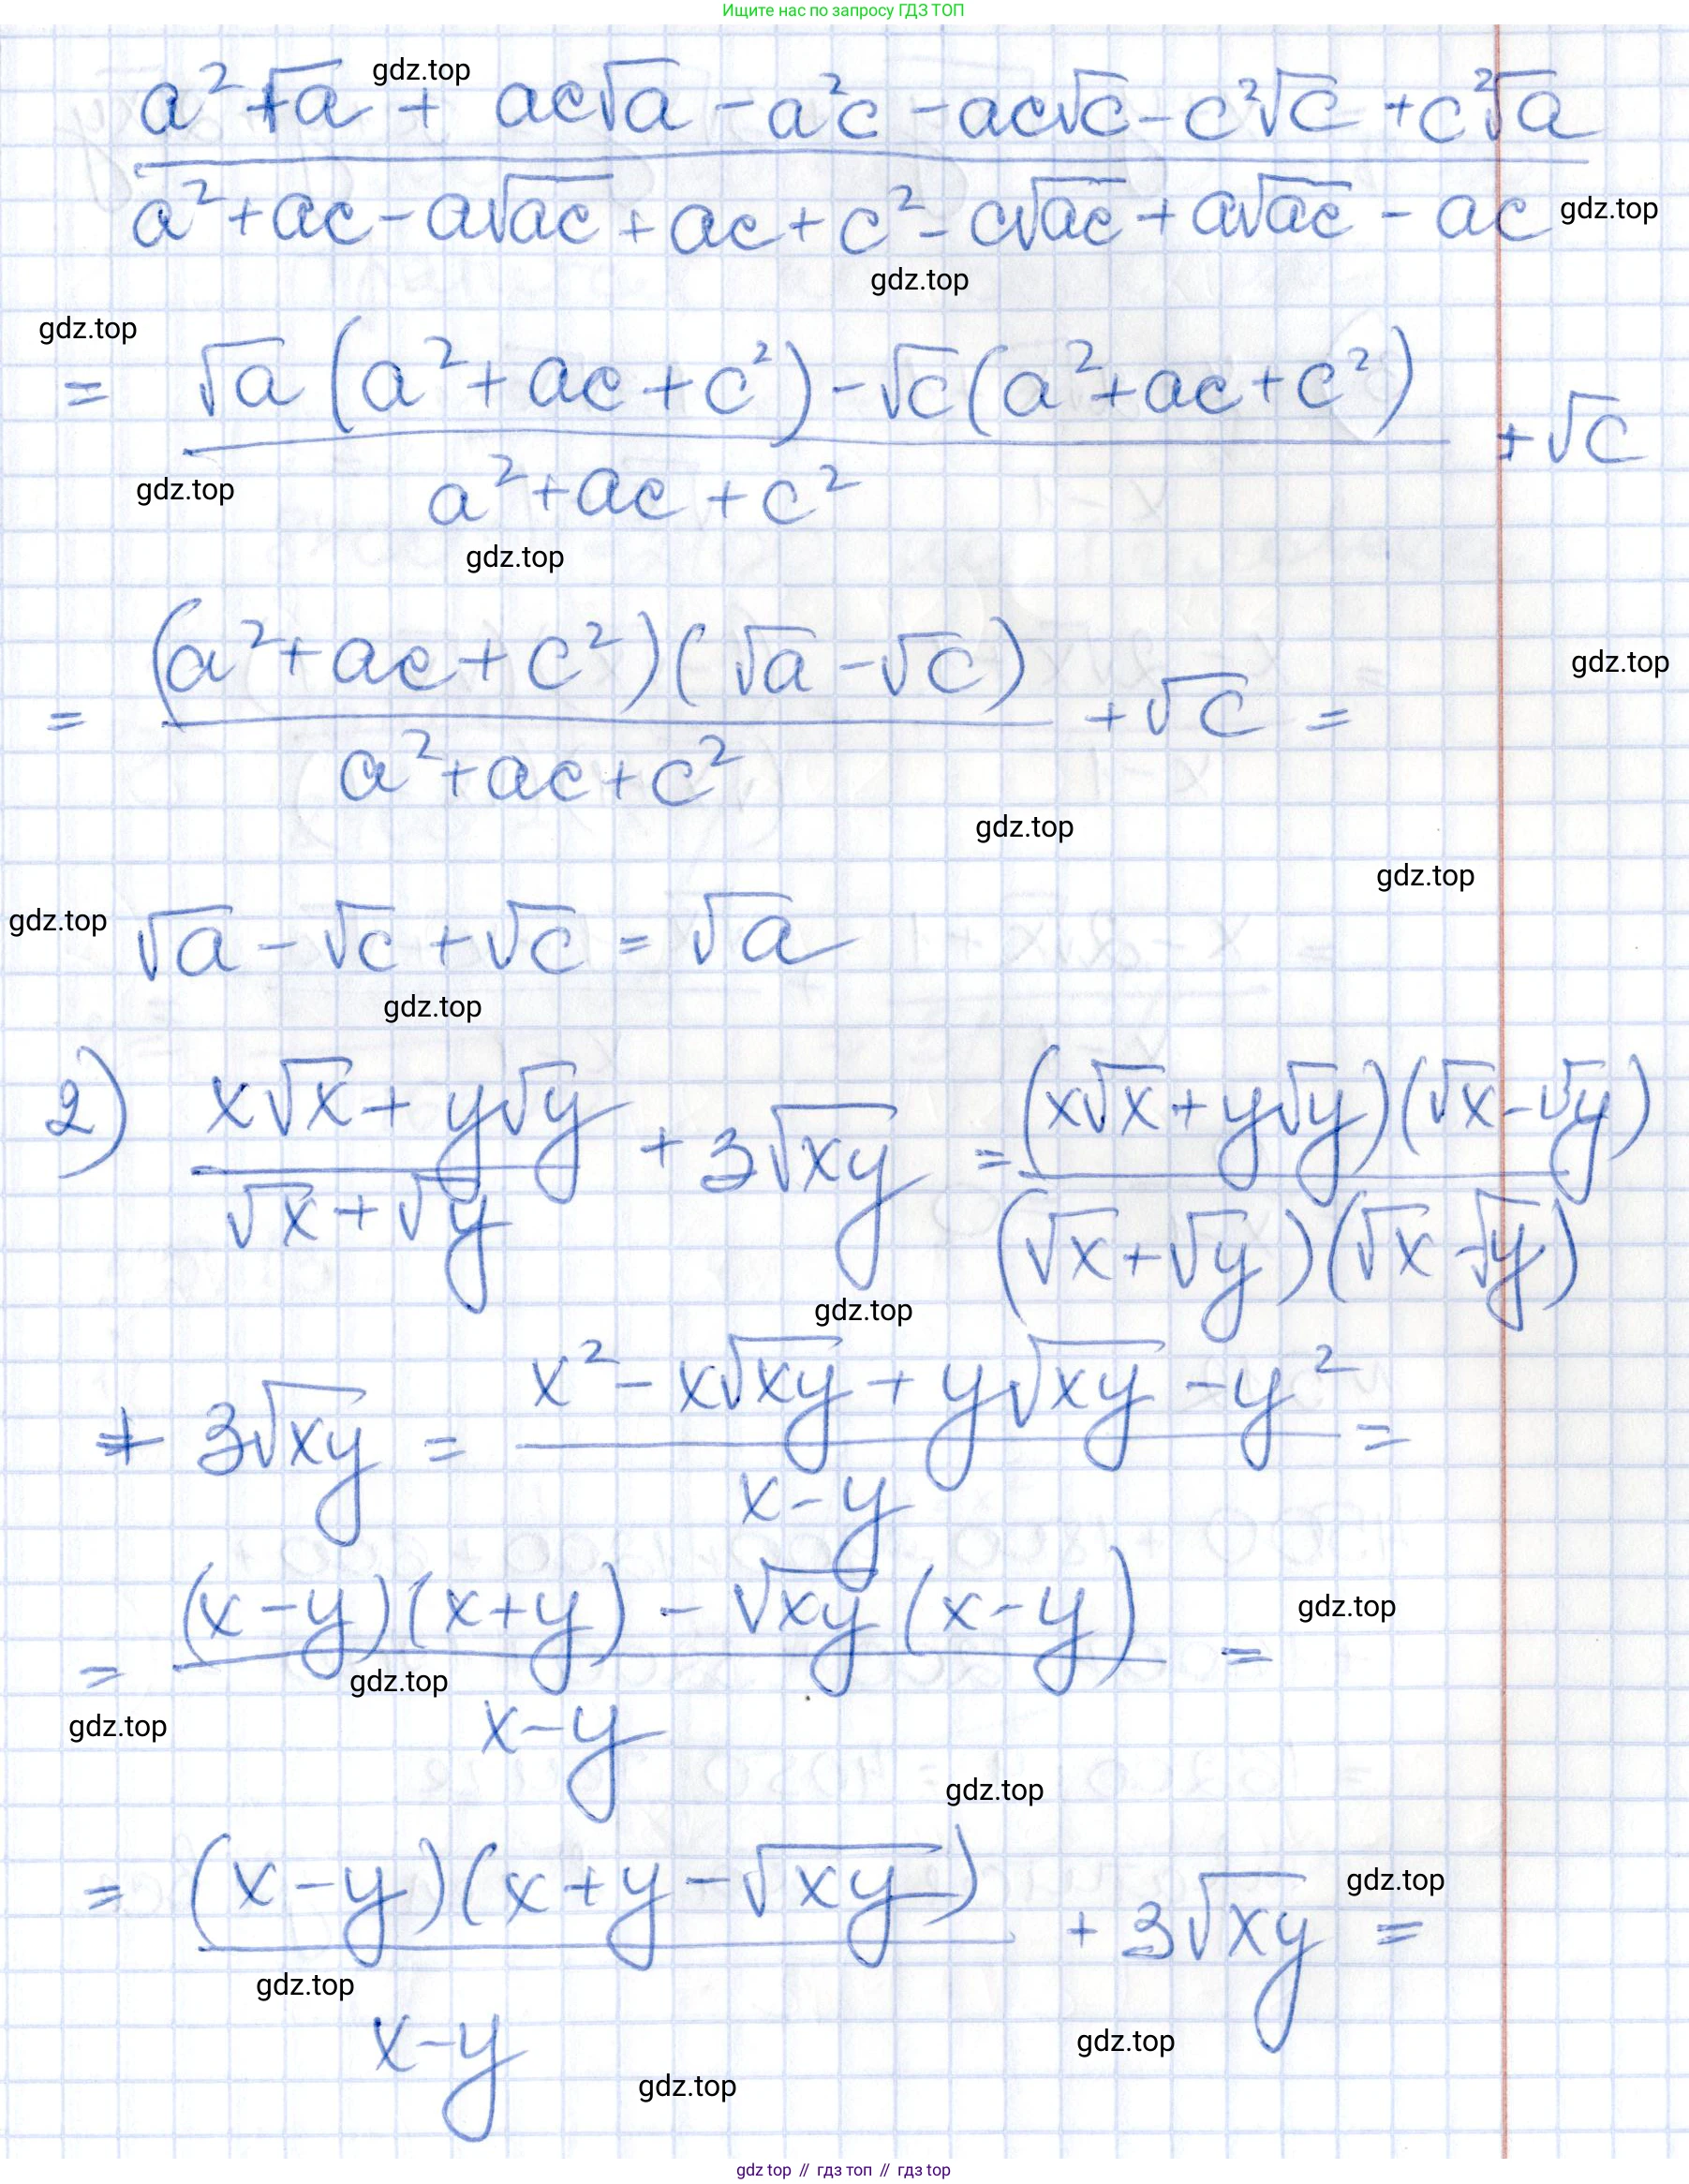 Ищите нас по запросу ГДЗ ТОП
gdz.top
a² + √a + ac√a − a²c − ac√c − c²√c + c²√a
a² + ac − a√ac + ac + c² − c√ac + a√ac − ac
gdz.top
gdz.top
gdz.top
= √a (a² + ac + c²) − √c (a² + ac + c²) + √c
gdz.top
a² + ac + c²
gdz.top
= (a² + ac + c²)(√a − √c) + √c =
gdz.top
a² + ac + c²
gdz.top
gdz.top
gdz.top
√a − √c + √c = √a
gdz.top
2) x√x + y√y + 3√xy = (x√x + y√y)(√x − √y)
√x + √y (√x + √y)(√x − √y)
gdz.top
+ 3√xy = x² − x√xy + y√xy − y² =
x − y
= (x − y)(x + y) − √xy (x − y) =
gdz.top
gdz.top
gdz.top
x − y
gdz.top
= (x − y)(x + y − √xy) + 3√xy =
gdz.top
gdz.top
x − y
gdz.top
gdz.top
gdz top // гдз топ // гдз top